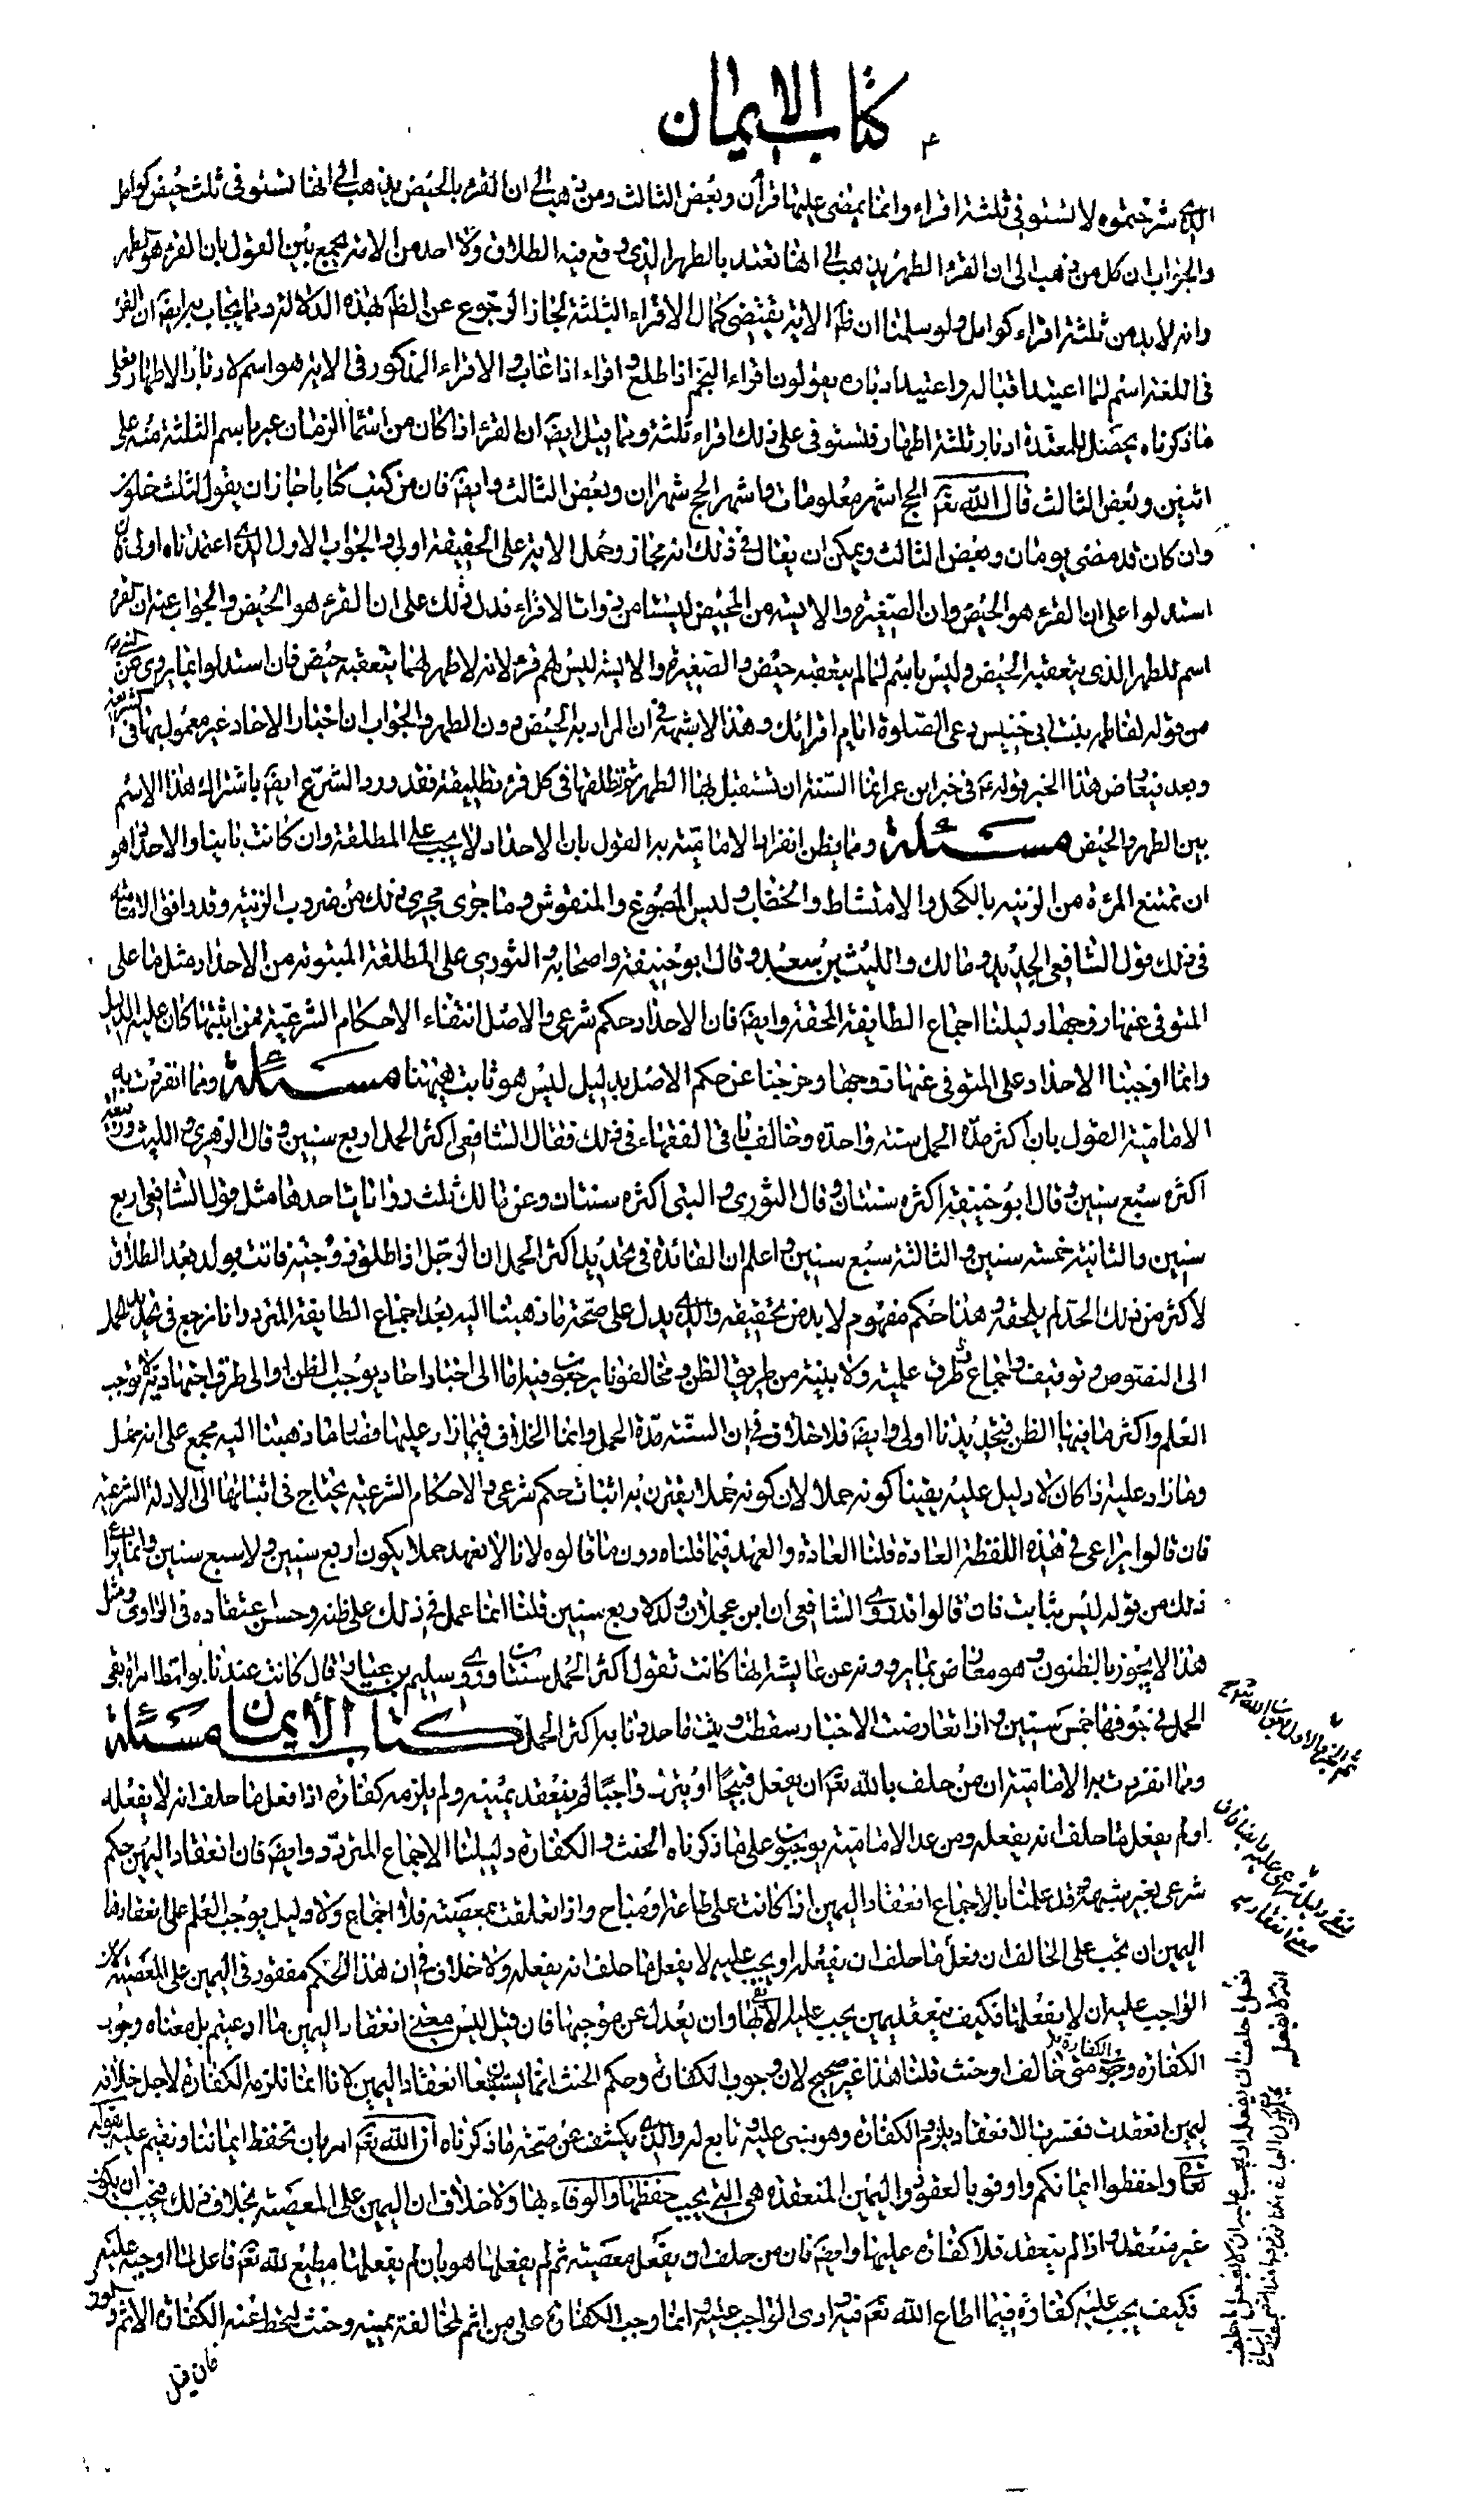 كتاب الايمان
الذي شرحتموه لا تستوفي ثلثة اقراء وانما يمضي عليها قرآن وبعض الثالث ومن ذهب الى ان القرء بالحيض يذهب الى انها تستوفي ثلث حيض كوامل
والجواب ان كل من ذهب الى ان القرء الطهر يذهب الى انها تعتد بالطهر الذي وقع فيه الطلاق ولا احد من الامة يجمع بين القول بان القرء هو الطهر
وانه لابد من ثلثة اقراء كوامل ولو سلمنا ان ظ الاية يقتضي كمال الاقراء الثلثة لجاز الرجوع عن الظ لهذه الدلالة ومما يجاب به ايض ان القرء
في اللغة اسم لما اعتيد اقباله واعتيد ادباره يقولون اقراء النجم اذا طلع واقراء اذا غاب والاقراء المذكور في الاية هو اسم لادبار الاطهار فعلى
ما ذكرناه يحصل للمعتدة ادبار ثلثة اطهار فتستوفي على ذلك اقراء ثلثة ومما قيل ايض ان القرء اذا كان من اسماء الزمان عبر باسم الثلثة منه على
اثنين وبعض الثالث قال الله تع الحج اشهر معلومات واشهر الحج شهران وبعض الثالث وايض فان من كتب كتابا جاز ان يقول لثلث خلون
وان كان قد مضى يومان وبعض الثالث ويمكن ان يقال في ذلك انه مجاز وحمل الاية على الحقيقة اولى والجواب الاول الذي اعتمدناه اولى فان
استدلوا على ان القرء هو الحيض وان الصغيرة والايسة من المحيض ليستا من ذوات الاقراء فدل ذلك على ان القرء هو الحيض والجواب عنه ان القرء
اسم للطهر الذي يتعقبه الحيض وليس باسم لما لم يتعقبه حيض والصغيرة والايسة ليس لهم قرء لانه لا طهر لهما يتعقبه حيض فان استدلوا بما يروى عن النبي ص
من قوله لفاطمة بنت ابي حبيش دعي الصلوة ايام اقرائك وهذا لا يشبهة في ان المراد به الحيض دون الطهر والجواب ان اخبار الاحاد غير معمول بها في الشريعة
وبعد فيعارض هذا الخبر قوله ع في خبر ابن عمر انما السنة ان تستقبل بها الطهر ثم تطلقها في كل قرء تطليقة فقد ورد الشرع ايض باشتراك هذا الاسم
بين الطهر والحيض مسئلة ومما يظن انفراد الامامية به القول بان الاحداد لا يجب على المطلقة وان كانت باينا والاحداد هو
ان تمتنع المرءة من الزينة بالكحل والامتشاط والخضاب ولبس المصبوغ والمنقوش وما جرى مجرى ذلك من ضروب الزينة وقد وافق الامامية
في ذلك قول الشافعي الجديد ومالك والليث بن سعد وقال ابو حنيفة واصحابه والثوري على المطلقة المبتوتة من الاحداد مثل ما على
المتوفى عنها زوجها دليلنا اجماع الطايفة المحقة وايض فان الاحداد حكم شرعي والاصل انتفاء الاحكام الشرعية فمن اثبتها كان عليه الدليل
وانما اوجبنا الاحداد على المتوفى عنها زوجها وخرجنا عن حكم الاصل بدليل ليس هو ثابت هيهنا مسئلة ومما انفردت به
الامامية القول بان اكثر مدة الحمل سنة واحدة وخالف باقي الفقهاء في ذلك فقال الشافعي اكثر الحمل اربع سنين وقال الزهري والليث وربيعة
اكثره سبع سنين وقال ابو حنيفة اكثره سنتان وقال الثوري والبتي اكثره سنتان وعن مالك ثلث روايات احدها مثل قول الشافعي اربع
سنين والثانية خمسة سنين والثالثة سبع سنين واعلم ان الفائدة في تحديد اكثر الحمل ان الرجل اذا طلق زوجته فاتت بولد بعد الطلاق
لاكثر من ذلك الحد لم يلحقه وهذا حكم مفهوم لابد من تحقيقه والذي يدل على صحة ما ذهبنا اليه بعد اجماع الطايفة المتردد انا نرجع في تحديد الحمل
الى النصوص وتوقيف واجماع وطرق علمية ولا يثبته من طريق الظن ومخالفونا يرجعون فيه اما الى اخبار احاد يوجب الظن او الى طرق اجتهادية لا توجب
العلم واكثر ما فيها الظن فتحديدنا اولى وايض فلا خلاف في ان السنة مدة الحمل وانما الخلاف فيما زاد عليها فصار ما ذهبنا اليه مجمع على انه حمل
وما زاد عليه اذا كان لا دليل عليه يقينا كونه حملا لان كونه حملا يقترن به اثبات حكم شرعي والاحكام الشرعية يحتاج في اثباتها الى الادلة الشرعية
فان قالوا يراعى في هذه اللفظة العادة قلنا العادة والعهد فيما قلناه دون ما قالوه لانا لا نعهد حملا يكون اربع سنين ولا سبع سنين وانما يراعى
ذلك من قوله ليس بثابت فان قالوا قد روى الشافعي ان ابن عجلان ولد لاربع سنين قلنا انما عمل في ذلك على ظنه وحسن عتقاده في الراوي ومثل
هذا لا يجوز بالظنون وهو معارض بما يروونه عن عايشة انها كانت تقول اكثر الحمل سنتان وروى سليم بن عباد قال كانت عندنا بواسط امراة بقى
الحمل في جوفها خمس سنين واذا تعارضت الاخبار سقطت وثبت ما حددنا به اكثر الحمل كتاب الأيمان مسئلة
ومما انفردت به الامامية ان من حلف بالله تع ان يفعل قبيحا او يترك واجبا لم ينعقد يمينه ولم يلزمه كفارة اذا فعل ما حلف انه لا يفعله
او لم يفعل ما حلف انه يفعله ومن عدا الامامية يوجبون على ما ذكرناه الحنث والكفارة دليلنا الاجماع المتردد وايض فان انعقاد اليمين حكم
شرعي بغير شبهة وقد علمنا بالاجماع انعقاد اليمين اذا كانت على طاعة او مباح واذا تعلقت بمعصية فلا اجماع ولا دليل يوجب العلم على انعقادها
اليمين ان يجب على الحالف ان يفعل ما حلف ان يفعله او يجب عليه لا يفعل ما حلف انه يفعله ولا خلاف في ان هذا الحكم مفقود في اليمين على المعصية لان
الواجب عليه ان لا يفعلها فكيف ينعقد يمين يجب عليه ان لا يفي بها وان يعدل عن موجبها فان قيل ليس معنى انعقاد اليمين ما ادعيتم بل معناه وجوب
الكفارة وجوه متى خالف وحنث قلنا هذا غير صحيح لان وجوب الكفارة وحكم الحنث انما يتبع انعقاد اليمين لانا انما نلزمه الكفارة لاجل خلافه
ليمين انعقدت فنفسر الانعقاد بلزوم الكفارة وهو مبني عليه وتابع له والذي يكشف عن صحة ما ذكرناه ان الله تع امر بان نحفظ ايماننا ونقيم عليه بقوله
تعا واحفظوا ايمانكم واوفوا بالعقود واليمين المنعقدة هي التي يجب حفظها والوفاء بها ولا خلاف ان اليمين على المعصية بخلاف ذلك فيجب ان يكون
غير منعقدة واذا لم ينعقد فلا كفارة عليها وايض فان من حلف ان يفعل معصية ثم لم يفعلها هو بان لم يفعلها مطيع لله تع فاعل لما اوجبه عليه
فكيف يجب عليه كفارة فيما اطاع الله تع فيه وادى الواجب عليه وانما وجب الكفارة على من اثم لمخالفة يمينه وحنث ليحط عنه الكفارة الاثم والوزر
فان قيل